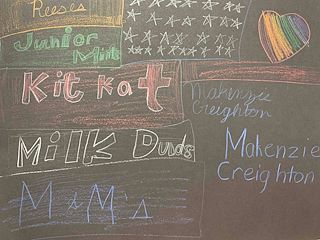 Reeses
Junior
Mints
Kit Kat
Makenzie
Creighton
Milk Duds
Makenzie
Creighton
M&M's